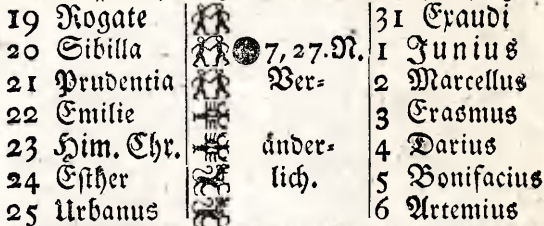 19 Rogate 31 Exaudi
20 Sibilla 7, 27. N. 1 Junius
21 Prudentia Ver= 2 Marcellus
22 Emilie 3 Erasmus
23 Him. Chr. änder= 4 Darius
24 Esther lich. 5 Bonifacius
25 Urbanus 6 Artemius